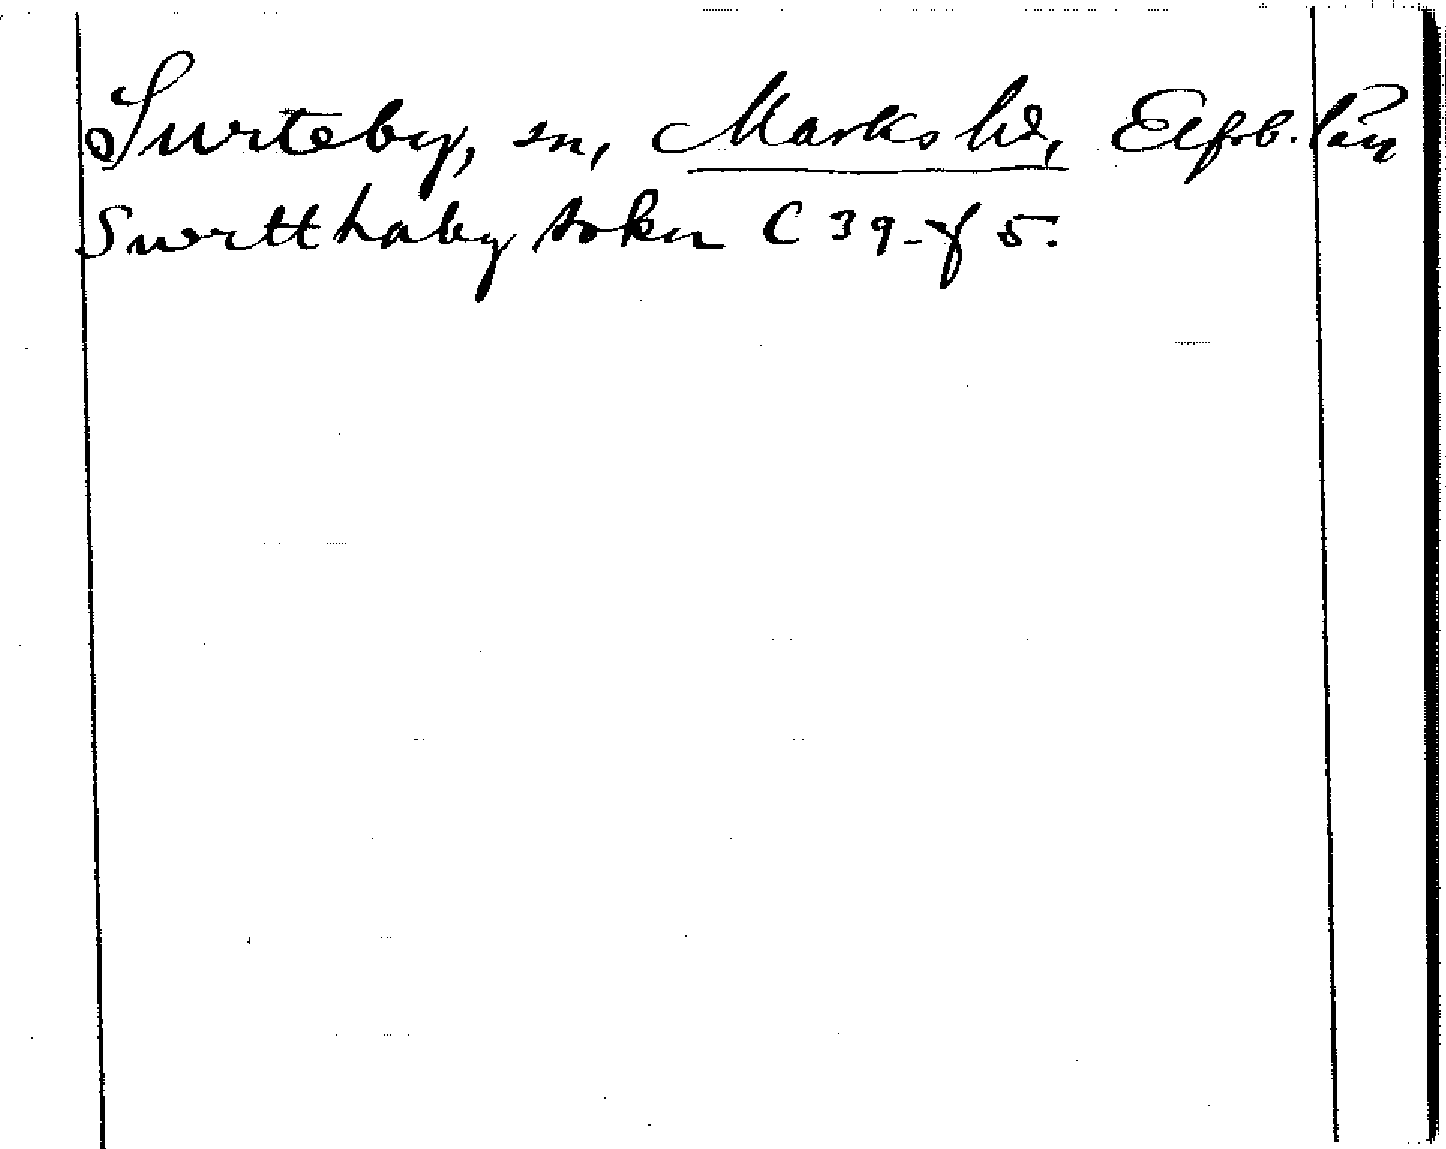 Surteby, sn, Marks hd, Elfsb. län
Swrtthaby sokn C 39 - f 5.